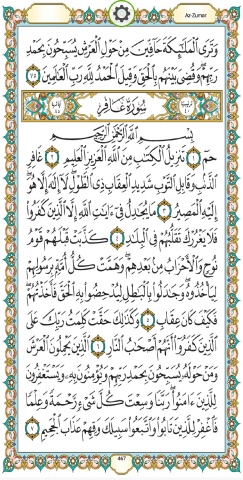 Az-Zumar
وَتَرَى ٱلْمَلَٰٓئِكَةَ حَآفِّينَ مِنْ حَوْلِ ٱلْعَرْشِ يُسَبِّحُونَ بِحَمْدِ
رَبِّهِمْ وَقُضِىَ بَيْنَهُم بِٱلْحَقِّ وَقِيلَ ٱلْحَمْدُ لِلَّهِ رَبِّ ٱلْعَٰلَمِينَ ٧٥
سُورَةُ غَافِرٍ
بِسْمِ ٱللَّهِ ٱلرَّحْمَٰنِ ٱلرَّحِيمِ
حمٓ ١ تَنزِيلُ ٱلْكِتَٰبِ مِنَ ٱللَّهِ ٱلْعَزِيزِ ٱلْعَلِيمِ ٢ غَافِرِ
ٱلذَّنۢبِ وَقَابِلِ ٱلتَّوْبِ شَدِيدِ ٱلْعِقَابِ ذِى ٱلطَّوْلِ لَآ إِلَٰهَ إِلَّا هُوَ
إِلَيْهِ ٱلْمَصِيرُ ٣ مَا يُجَٰدِلُ فِىٓ ءَايَٰتِ ٱللَّهِ إِلَّا ٱلَّذِينَ كَفَرُوا۟
فَلَا يَغْرُرْكَ تَقَلُّبُهُمْ فِى ٱلْبِلَٰدِ ٤ كَذَّبَتْ قَبْلَهُمْ قَوْمُ
نُوحٍ وَٱلْأَحْزَابُ مِنۢ بَعْدِهِمْ وَهَمَّتْ كُلُّ أُمَّةٍۭ بِرَسُولِهِمْ
لِيَأْخُذُوهُ وَجَٰدَلُوا۟ بِٱلْبَٰطِلِ لِيُدْحِضُوا۟ بِهِ ٱلْحَقَّ فَأَخَذْتُهُمْ
فَكَيْفَ كَانَ عِقَابِ ٥ وَكَذَٰلِكَ حَقَّتْ كَلِمَتُ رَبِّكَ عَلَى
ٱلَّذِينَ كَفَرُوٓا۟ أَنَّهُمْ أَصْحَٰبُ ٱلنَّارِ ٦ ٱلَّذِينَ يَحْمِلُونَ ٱلْعَرْشَ
وَمَنْ حَوْلَهُۥ يُسَبِّحُونَ بِحَمْدِ رَبِّهِمْ وَيُؤْمِنُونَ بِهِۦ وَيَسْتَغْفِرُونَ
لِلَّذِينَ ءَامَنُوا۟ رَبَّنَا وَسِعْتَ كُلَّ شَىْءٍ رَّحْمَةً وَعِلْمًا
فَٱغْفِرْ لِلَّذِينَ تَابُوا۟ وَٱتَّبَعُوا۟ سَبِيلَكَ وَقِهِمْ عَذَابَ ٱلْجَحِيمِ ٧
467